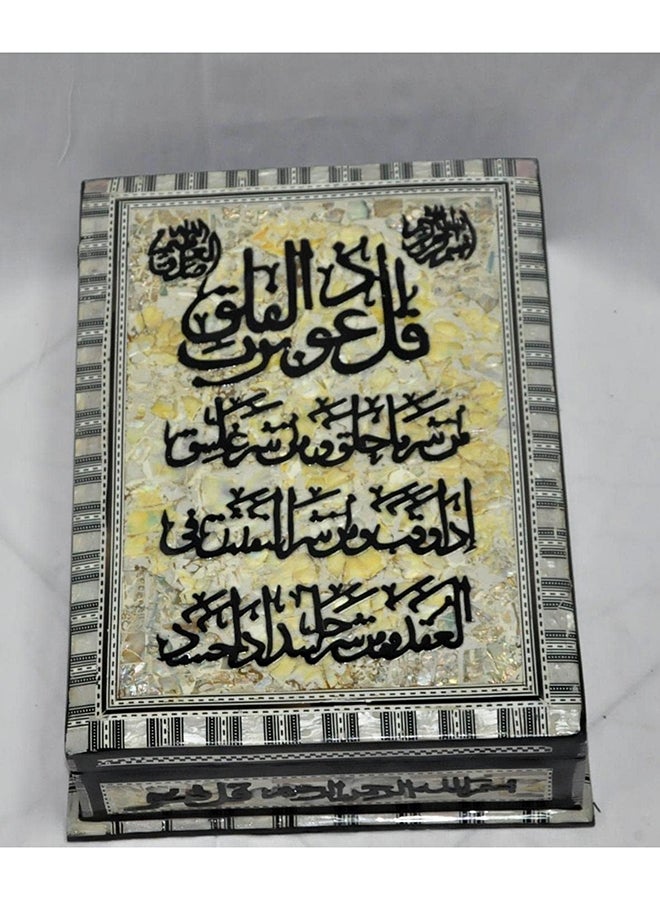 بسم الله الرحمن الرحيم
قل أعوذ برب الفلق
من شر ما خلق ومن شر غاسق
إذا وقب ومن شر النفثت في
العقد ومن شر حاسد إذا حسد
صدق الله العظيم
بسم الله الرحمن الرحيم قل